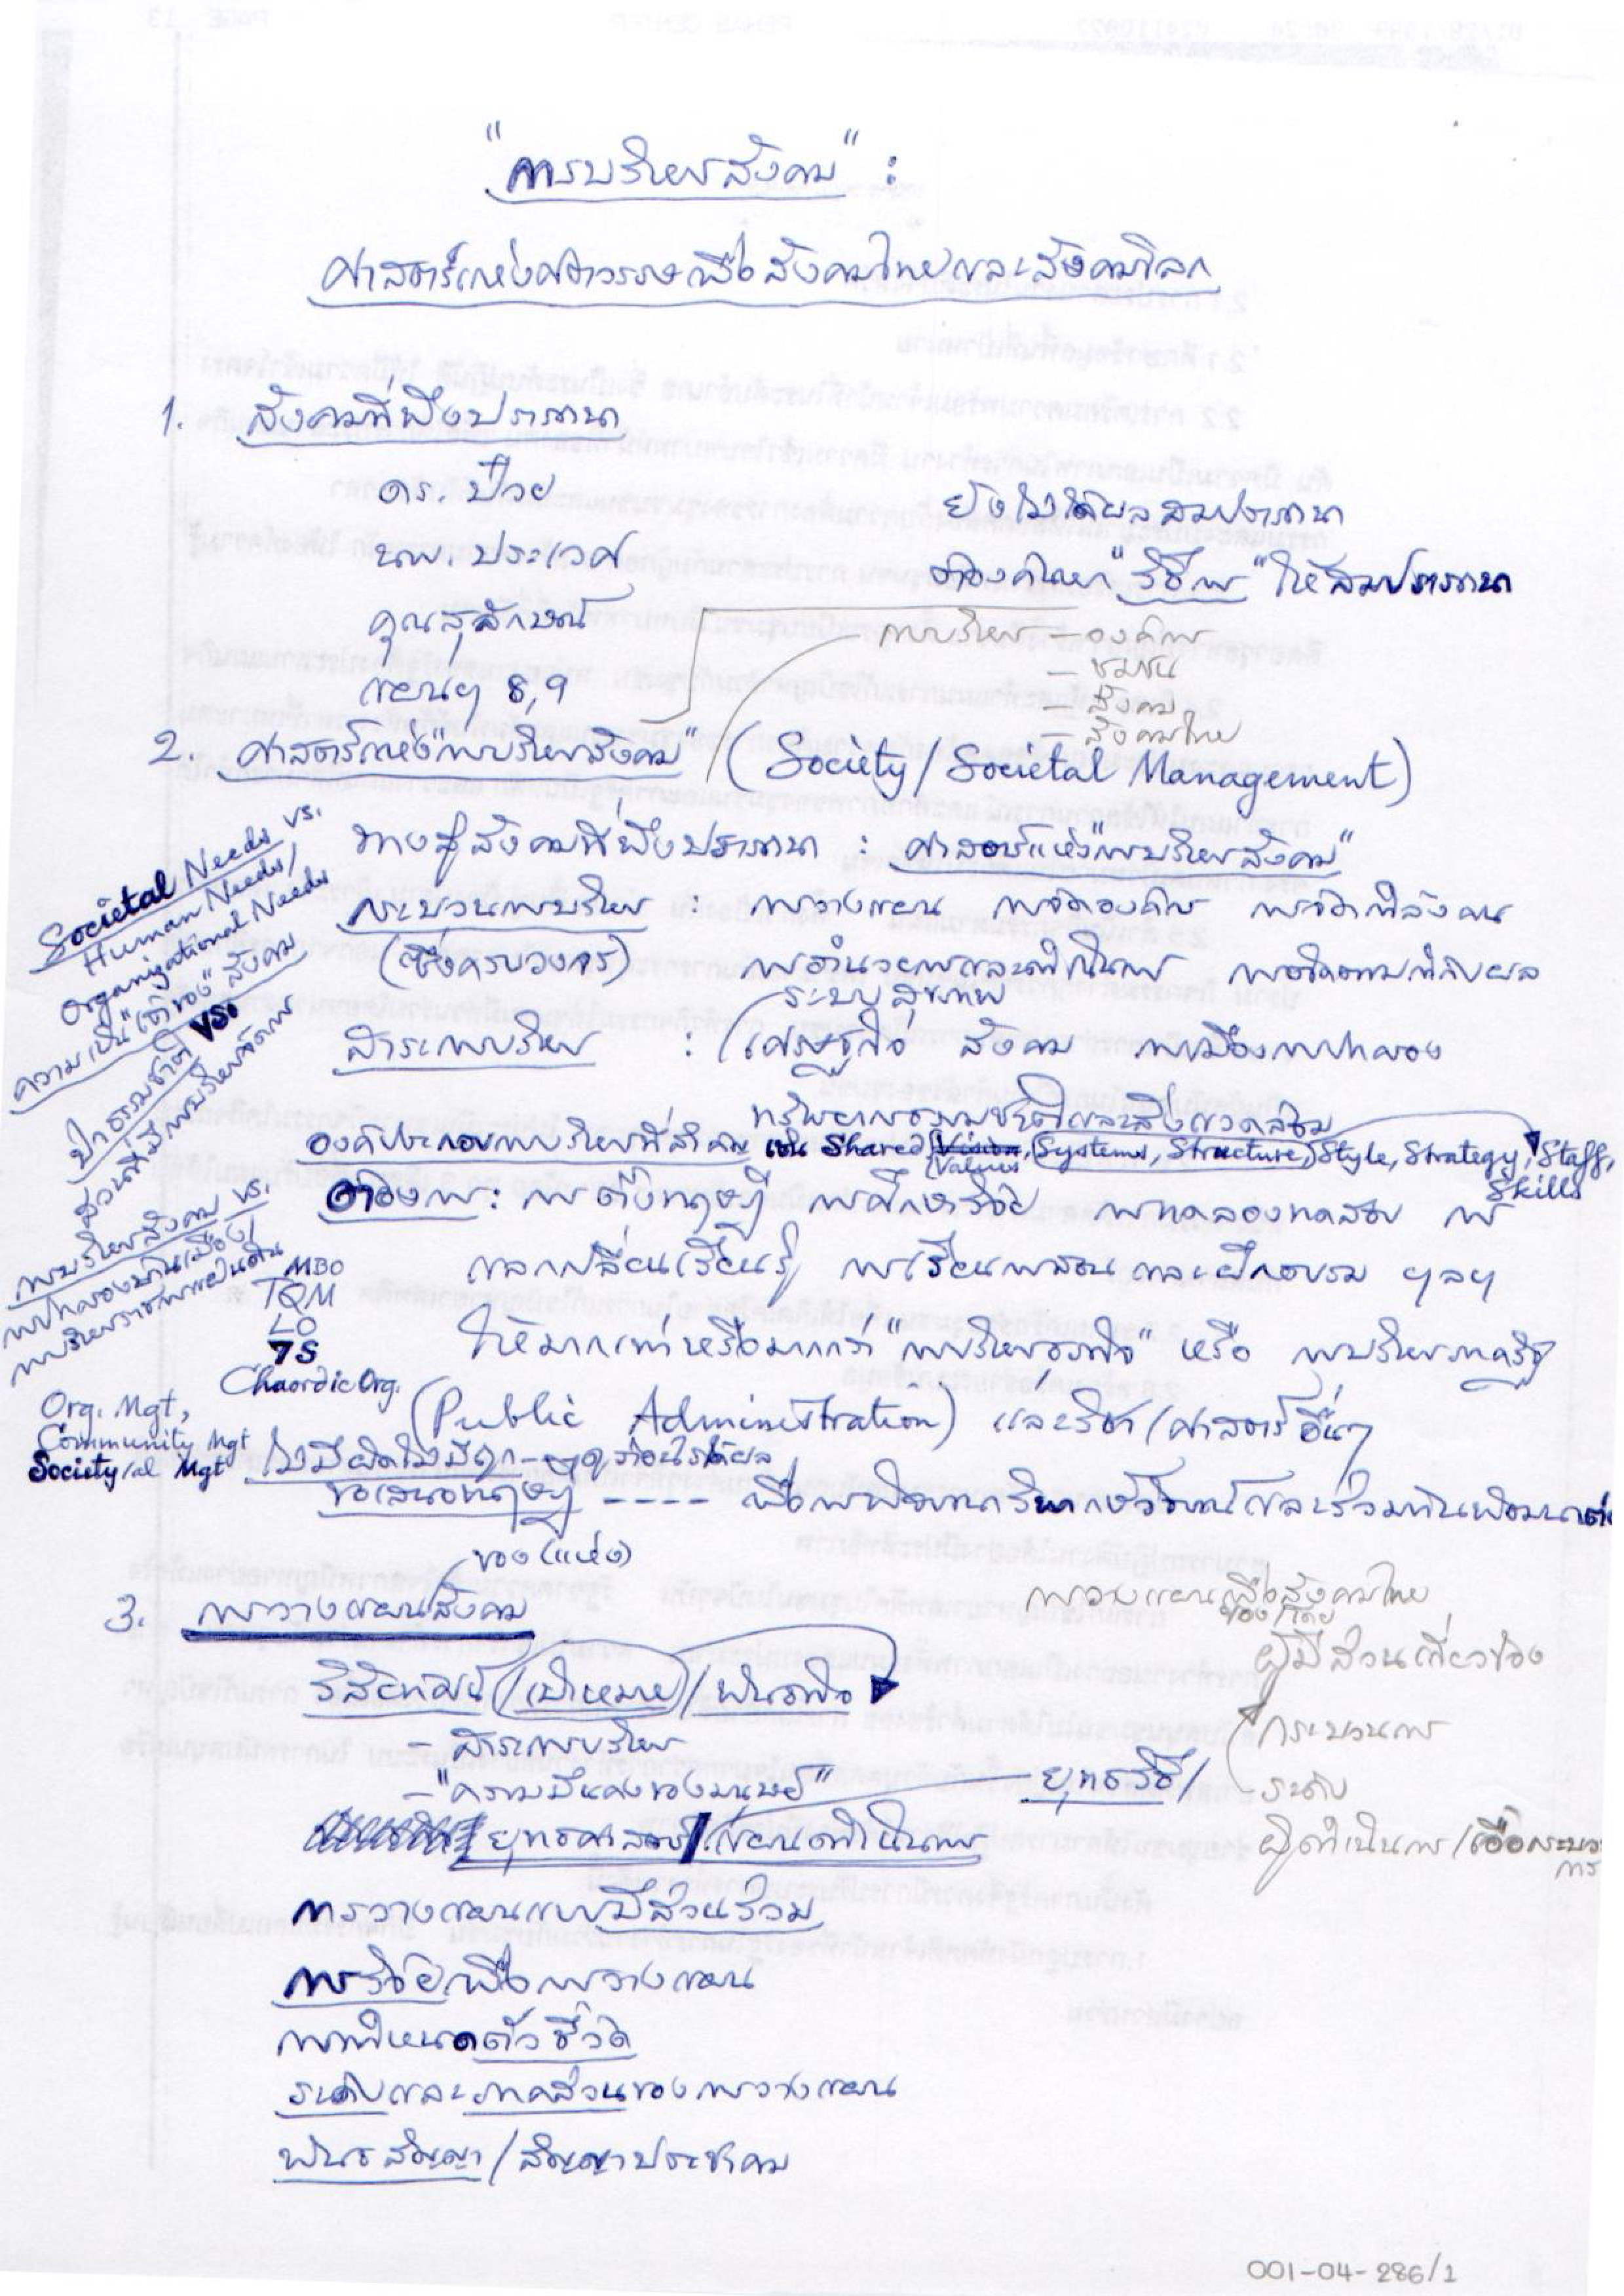 "การบริหารสังคม" :
ศาสตร์แห่งศตวรรษเพื่อสังคมไทยและสังคมโลก
1. สังคมที่พึงปรารถนา
ดร. ป๋วย
นพ. ประเวศ
คุณสุลักษณ์
แผนฯ 8, 9
ยังไม่ได้ผลสมปรารถนา
ต้องค้นหา "วิธีการ" ให้สมปรารถนา
การบริหาร – องค์การ
– ชุมชน
– สังคม
– สังคมไทย
2. ศาสตร์แห่ง "การบริหารสังคม" (Society/Societal Management)
ทางสู่สังคมที่พึงปรารถนา : ศาสตร์แห่ง "การบริหารสังคม"
กระบวนการบริหาร : การวางแผน การจัดองค์การ การจัดกำลังคน
(ซึ่งครบวงจร) การอำนวยการและดำเนินการ การติดตามกำกับผล
ระบบสุขภาพ
สาระการบริหาร : เศรษฐกิจ สังคม การเมืองการปกครอง
ทรัพยากรธรรมชาติและสิ่งแวดล้อม
องค์ประกอบการบริหารที่สำคัญ เช่น Shared Vision, Systems, Structure, Style, Strategy, Staff,
Values
Skills
ต้องการ : การตั้งทฤษฎี การศึกษาวิจัย การทดลองทดสอบ การ
แลกเปลี่ยนเรียนรู้ การเรียนการสอน และฝึกอบรม ฯลฯ
ให้มากเท่าหรือมากกว่า "การบริหารธุรกิจ" หรือ การบริหารภาครัฐ
(Public Administration) และวิชา/ศาสตร์อื่นๆ
ไม่มีผิดไม่มีถูก
ขอเสนอทฤษฎี ---- เพื่อการพิจารณาวิพากษ์วิจารณ์และร่วมกันพัฒนาต่อ
Societal Needs vs.
Human Needs/
Organizational Needs
ความเป็น "เจ้าของ" สังคม
ป่าธรรมชาติ vs.
สวนที่มีการบริหารจัดการ
การบริหารสังคม vs.
การปกครองบ้านเมือง/
การบริหารราชการแผ่นดิน
MBO
TQM
LO
7S
Chaordic Org.
Org. Mgt,
Community Mgt
Society/al Mgt
ของ (แห่ง)
3. การวางแผนสังคม
การวางแผนเพื่อสังคมไทย
ของ/โดย
ผู้มีส่วนเกี่ยวข้อง
วิสัยทัศน์/เป้าหมาย/พันธกิจ
กระบวนการ
– สาระการบริหาร
– "ความมั่นคงของมนุษย์"
ยุทธวิธี/
– ระดับ
ยุทธศาสตร์/แผนดำเนินการ
ผู้ดำเนินการ/เอื้อกระบวน
การ
การวางแผนแบบมีส่วนร่วม
การวิจัยเพื่อการวางแผน
การกำหนดตัวชี้วัด
ระดับและภาคส่วนของการวางแผน
พันธสัญญา/สัญญาประชาคม
001-04-286/1